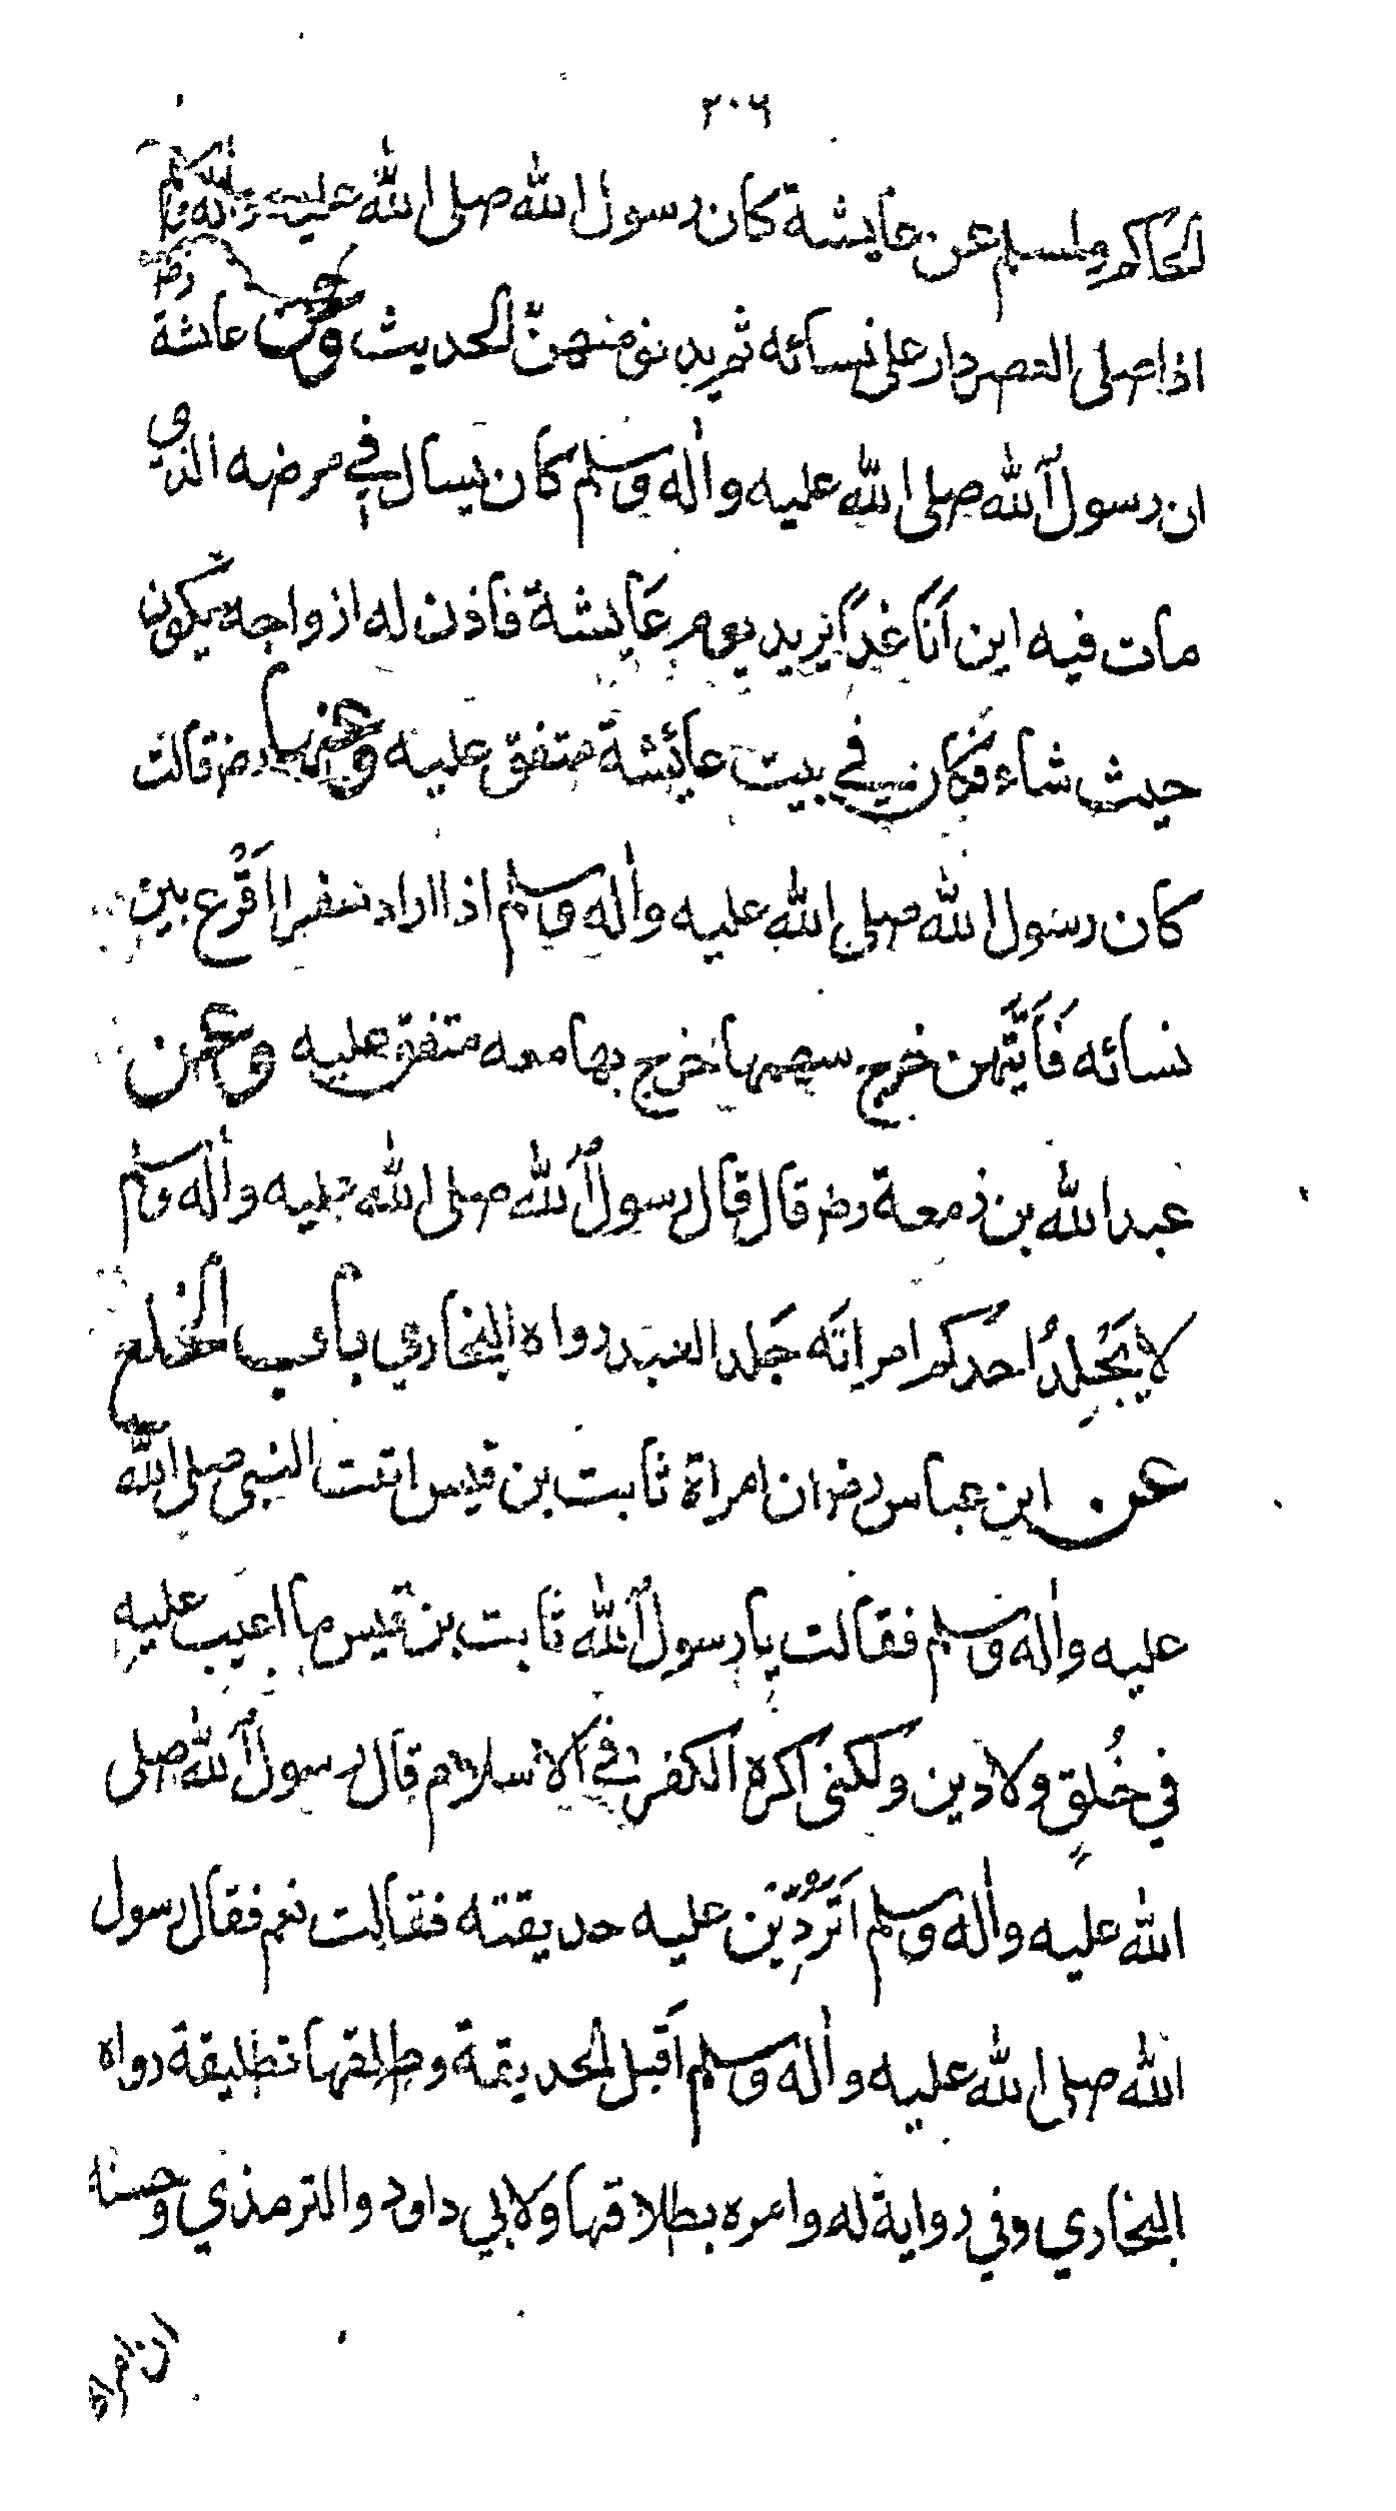 ٢٠٦
الحاكم ولمسلم عن عايشة كان رسول الله صلى الله عليه واله وسلم
اذا صلى العصر دار على نسائه ثم يدنو منهنّ الحديث وعن عائشة رضه
ان رسول الله صلى الله عليه واله وسلم كان يسال في مرضه الذي
مات فيه اين اَنَا غدًا يريد يوم عَايشة فاذن له ازواجه يكون
حيث شاء فكان في بيت عائشة متفق عليه وعنها رضه قالت
كان رسول الله صلى الله عليه واله وسلم اذا اراد سفرا اَقْرع بين
نسائه فَاَيَّتهن خرج سهمها خرج بها معه متفق عليه وعن
عبد الله بن زمعة رضه قال قال رسول الله صلى الله عليه واله وسلم
لا يَجْلِدُ احَدكم امراتَه جَلد العبد رواه البخاري باب الخلع
عن ابن عباس رضه ان امراة ثابت بن قيس اتت النبي صلى الله
عليه واله وسلم فقالت يا رسول الله ثابت بن قيس ما اعيب عليه
في خُلقٍ ولا دين ولكني اكره الكفر في الاسلام قال رسول الله صلى
الله عليه واله وسلم اَتَرُدِّيْن عليه حديقته فقالت نعم فقال رسول
الله صلى الله عليه واله وسلم اَقبل الحديقة وطلقها تطليقة رواه
البخاري وفي رواية له وامره بطلاقها ولابي داود والترمذي وحسنه